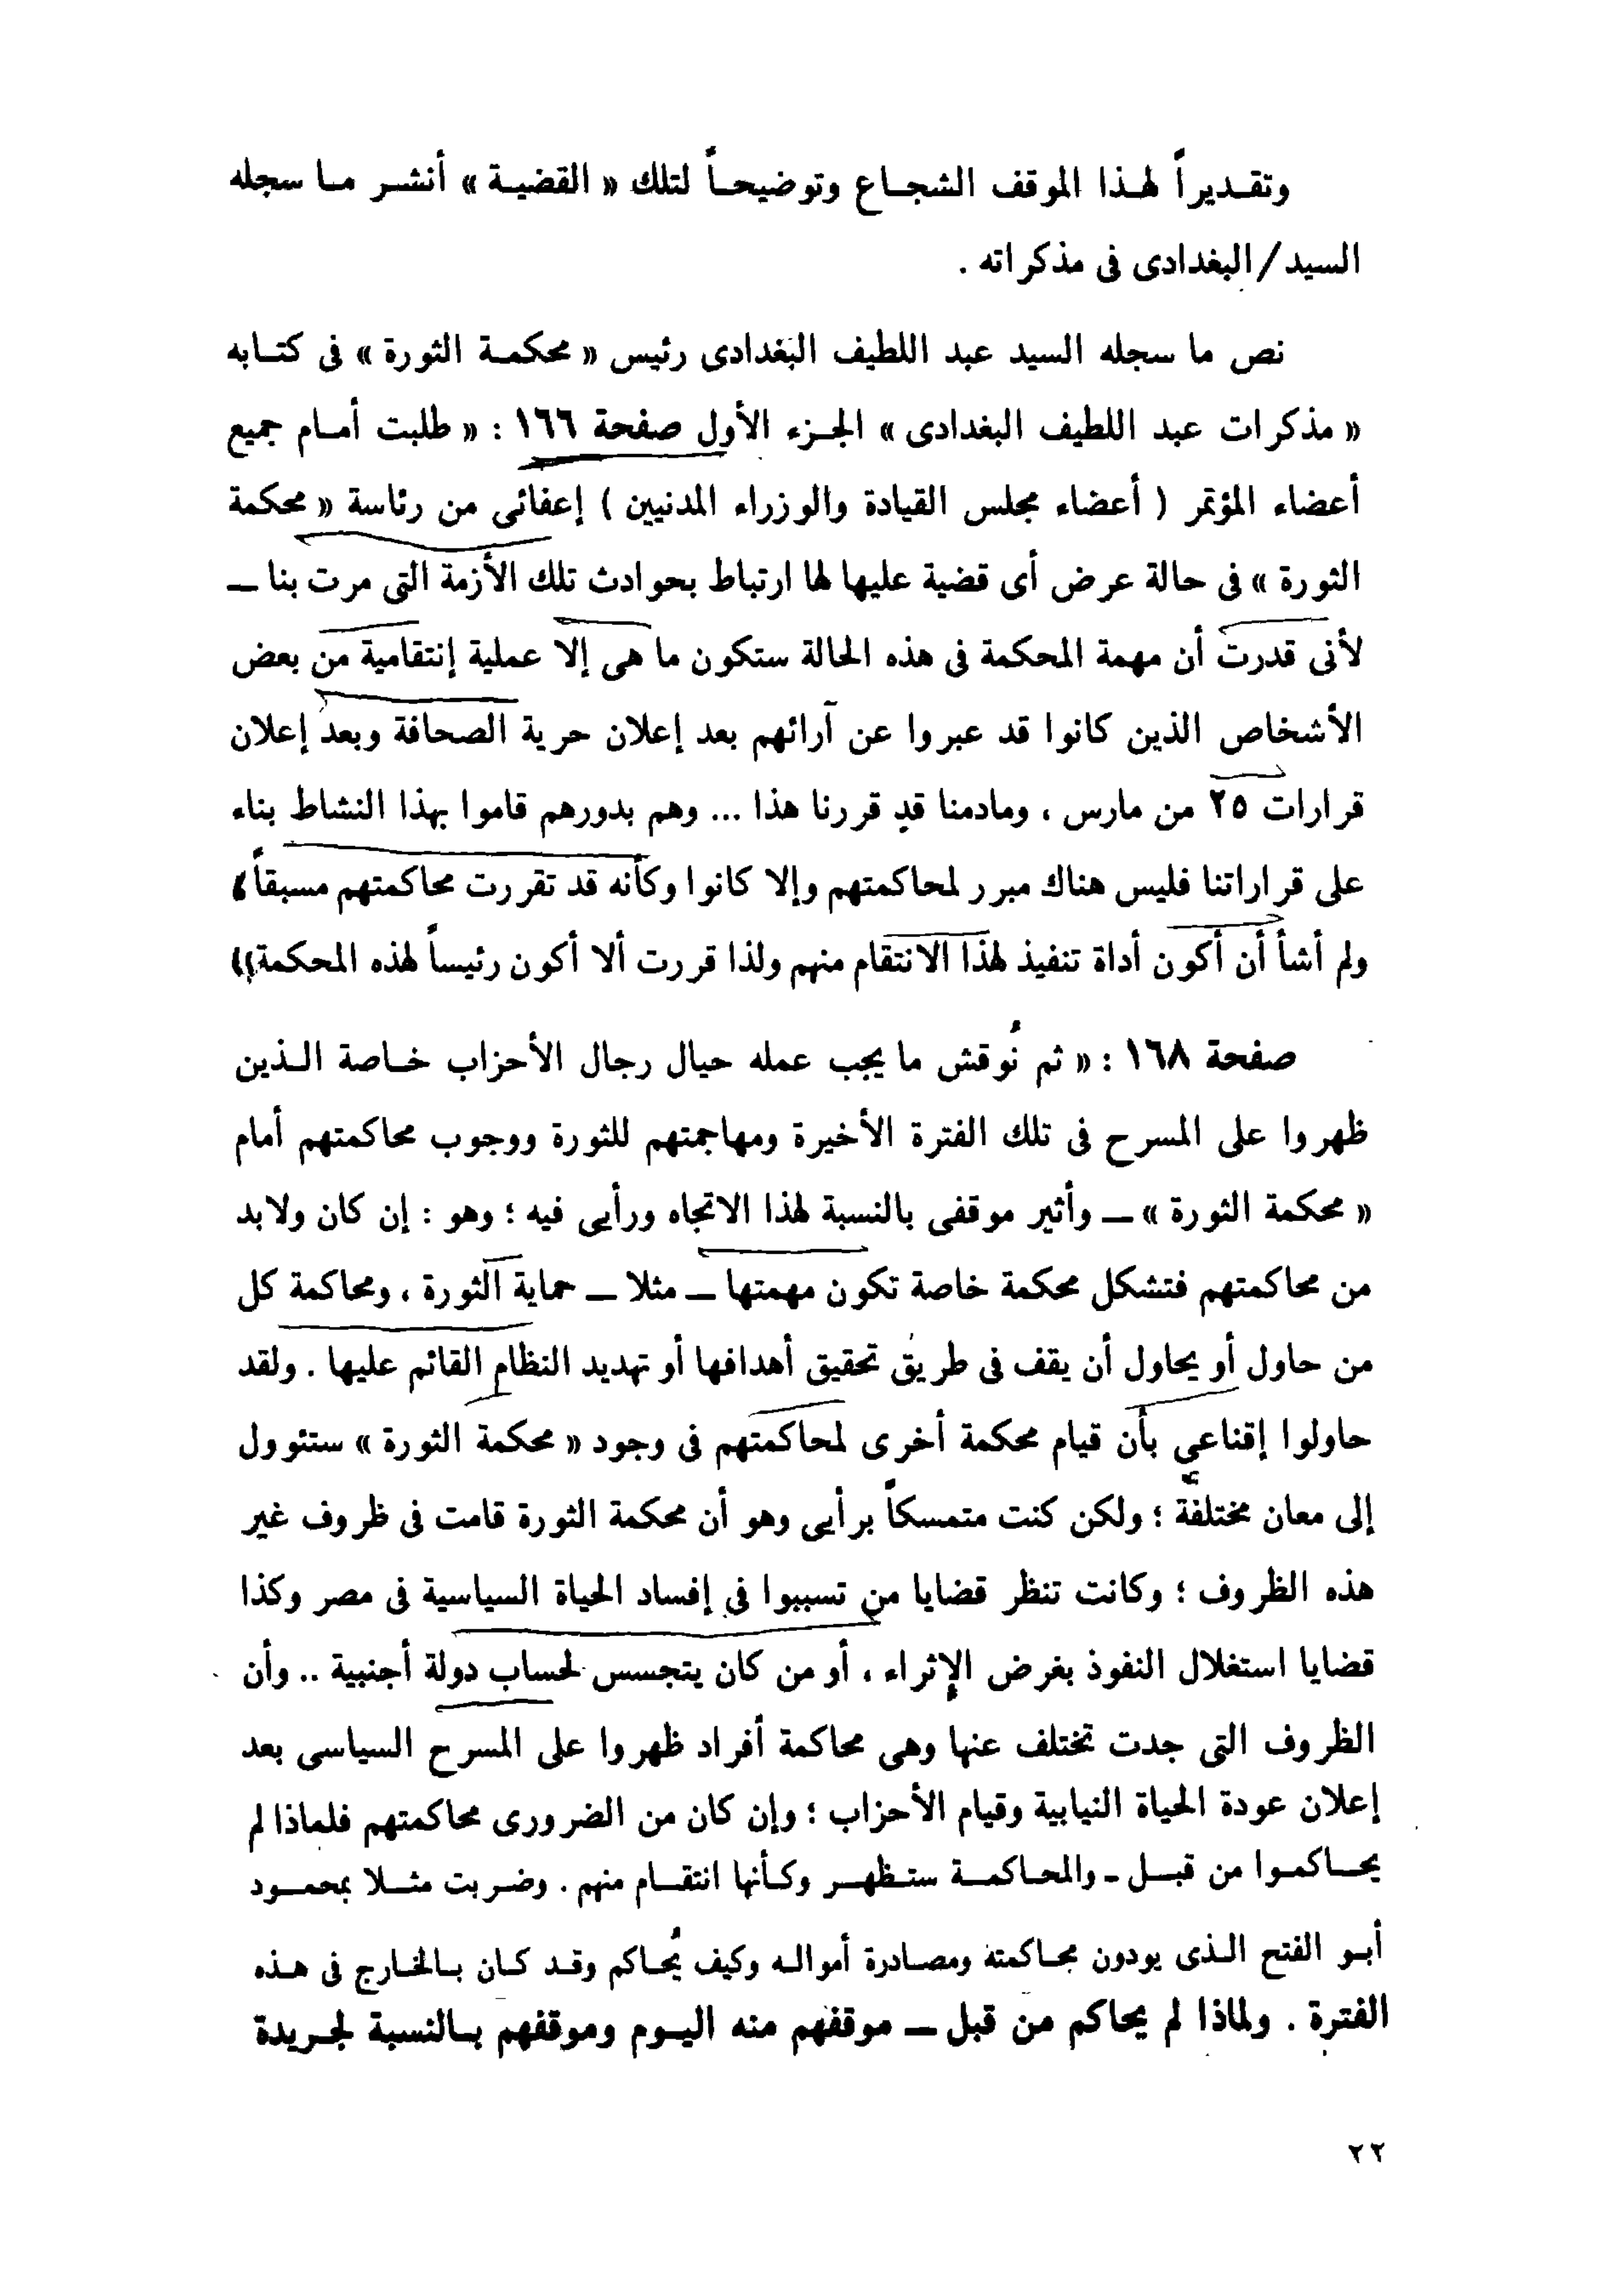 وتقديراً لهذا الموقف الشجاع وتوضيحاً لتلك « القضية » أنشر ما سجله
السيد/البغدادى فى مذكراته .
نص ما سجله السيد عبد اللطيف البغدادى رئيس « محكمة الثورة » فى كتابه
« مذكرات عبد اللطيف البغدادى » الجزء الأول صفحة ١٦٦ : « طلبت أمام جميع
أعضاء المؤتمر ( أعضاء مجلس القيادة والوزراء المدنيين ) إعفائى من رئاسة « محكمة
الثورة » فى حالة عرض أى قضية عليها لها ارتباط بحوادث تلك الأزمة التى مرت بنا ــ
لأنى قدرت أن مهمة المحكمة فى هذه الحالة ستكون ما هى إلا عملية إنتقامية من بعض
الأشخاص الذين كانوا قد عبروا عن آرائهم بعد إعلان حرية الصحافة وبعد إعلان
قرارات ٢٥ من مارس ، ومادمنا قد قررنا هذا ... وهم بدورهم قاموا بهذا النشاط بناء
على قراراتنا فليس هناك مبرر لمحاكمتهم وإلا كانوا وكأنه قد تقررت محاكمتهم مسبقاً ،
ولم أشأ أن أكون أداة تنفيذ لهذا الانتقام منهم ولذا قررت ألا أكون رئيساً لهذه المحكمة »
صفحة ١٦٨ : « ثم نُوقش ما يجب عمله حيال رجال الأحزاب خاصة الذين
ظهروا على المسرح فى تلك الفترة الأخيرة ومهاجمتهم للثورة ووجوب محاكمتهم أمام
« محكمة الثورة » ــ وأثير موقفى بالنسبة لهذا الاتجاه ورأيى فيه ؛ وهو : إن كان ولابد
من محاكمتهم فتشكل محكمة خاصة تكون مهمتها ــ مثلا ــ حماية الثورة ، ومحاكمة كل
من حاول أو يحاول أن يقف فى طريق تحقيق أهدافها أو تهديد النظام القائم عليها . ولقد
حاولوا إقناعي بأن قيام محكمة أخرى لمحاكمتهم فى وجود « محكمة الثورة » ستئوول
إلى معان مختلفة ؛ ولكن كنت متمسكاً برأيى وهو أن محكمة الثورة قامت فى ظروف غير
هذه الظروف ؛ وكانت تنظر قضايا من تسببوا فى إفساد الحياة السياسية فى مصر وكذا
قضايا استغلال النفوذ بغرض الإثراء ، أو من كان يتجسس لحساب دولة أجنبية .. وأن
الظروف التى جدت تختلف عنها وهى محاكمة أفراد ظهروا على المسرح السياسى بعد
إعلان عودة الحياة النيابية وقيام الأحزاب ؛ وإن كان من الضرورى محاكمتهم فلماذا لم
يحاكموا من قبل ـ والمحاكمة ستظهر وكأنها انتقام منهم . وضربت مثلا بمحمود
أبو الفتح الذى يودون محاكمته ومصادرة أمواله وكيف يُحاكم وقد كان بالخارج فى هذه
الفترة . ولماذا لم يحاكم من قبل ــ موقفهم منه اليوم وموقفهم بالنسبة لجريدة
٢٢